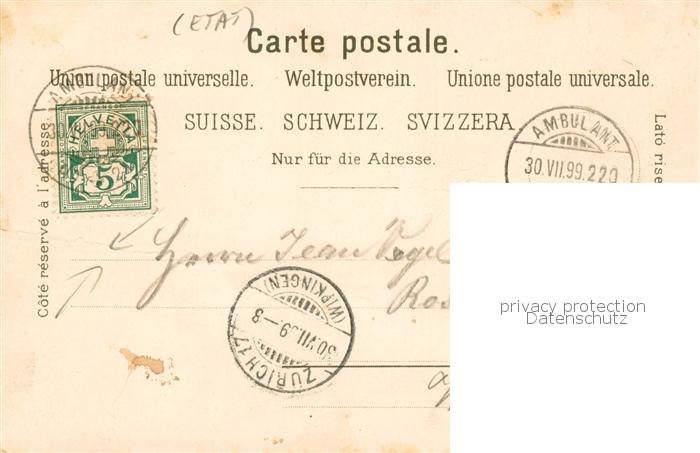 (ETAT)
Carte postale.
Union postale universelle. Weltpostverein. Unione postale universale.
SUISSE. SCHWEIZ. SVIZZERA.
Nur für die Adresse.
Côté réservé à l'adresse
Lató rise
AMBULANT
HELVETIA
5
AMBULANT
30.VII.99.220
Herrn Jean Vogel
Ros
(WIPKINGEN)
30.VII.99-8
ZÜRICH 17
privacy protection
Datenschutz